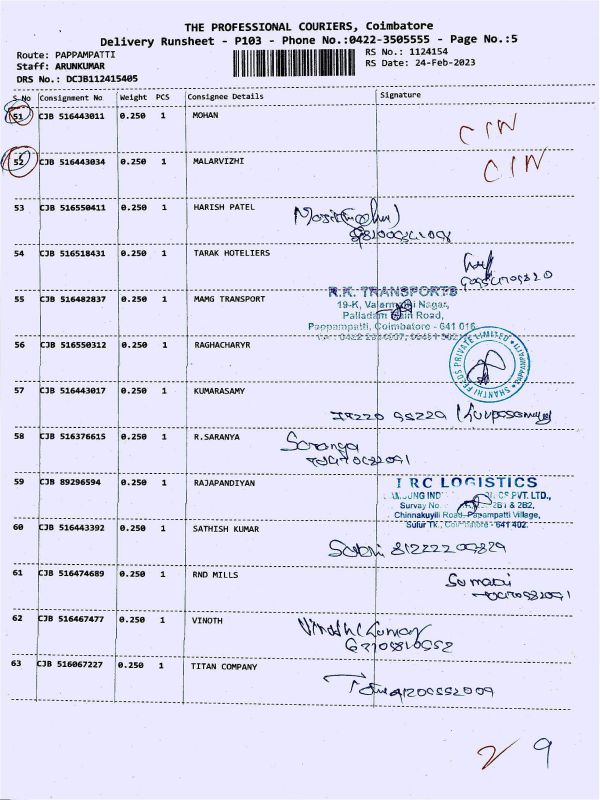 THE PROFESSIONAL COURIERS, Coimbatore
Delivery Runsheet - P103 - Phone No.:0422-3505555 - Page No.:5
Route: PAPPAMPATTI
Staff: ARUNKUMAR
DRS No.: DCJB112415405
RS No.: 1124154
RS Date: 24-Feb-2023
S.No Consignment No Weight PCS Consignee Details Signature
51 CJB 516443011 0.250 1 MOHAN CIN
52 CJB 516443034 0.250 1 MALARVIZHI CIN
53 CJB 516550411 0.250 1 HARISH PATEL
54 CJB 516518431 0.250 1 TARAK HOTELIERS
55 CJB 516482837 0.250 1 MAMG TRANSPORT
R.K. TRANSPORTS
19-K, Nagar,
Palladam Main Road,
Pappampatti, Coimbatore - 641 016
56 CJB 516550312 0.250 1 RAGHACHARYR
SHANTHI FEEDS PRIVATE LIMITED PAPPAMPATTI
57 CJB 516443017 0.250 1 KUMARASAMY
58 CJB 516376615 0.250 1 R.SARANYA
Saranya
59 CJB 89296594 0.250 1 RAJAPANDIYAN
LOGISTICS
PVT. LTD.,
Survay No. 2B1 & 2B2,
Chinnakuyili Road, Pappampatti Village,
Sulur Tk., Coimbatore - 641 402.
60 CJB 516443392 0.250 1 SATHISH KUMAR
61 CJB 516474689 0.250 1 RND MILLS
Sumathi
62 CJB 516467477 0.250 1 VINOTH
Vinothkumar
63 CJB 516067227 0.250 1 TITAN COMPANY
2 9